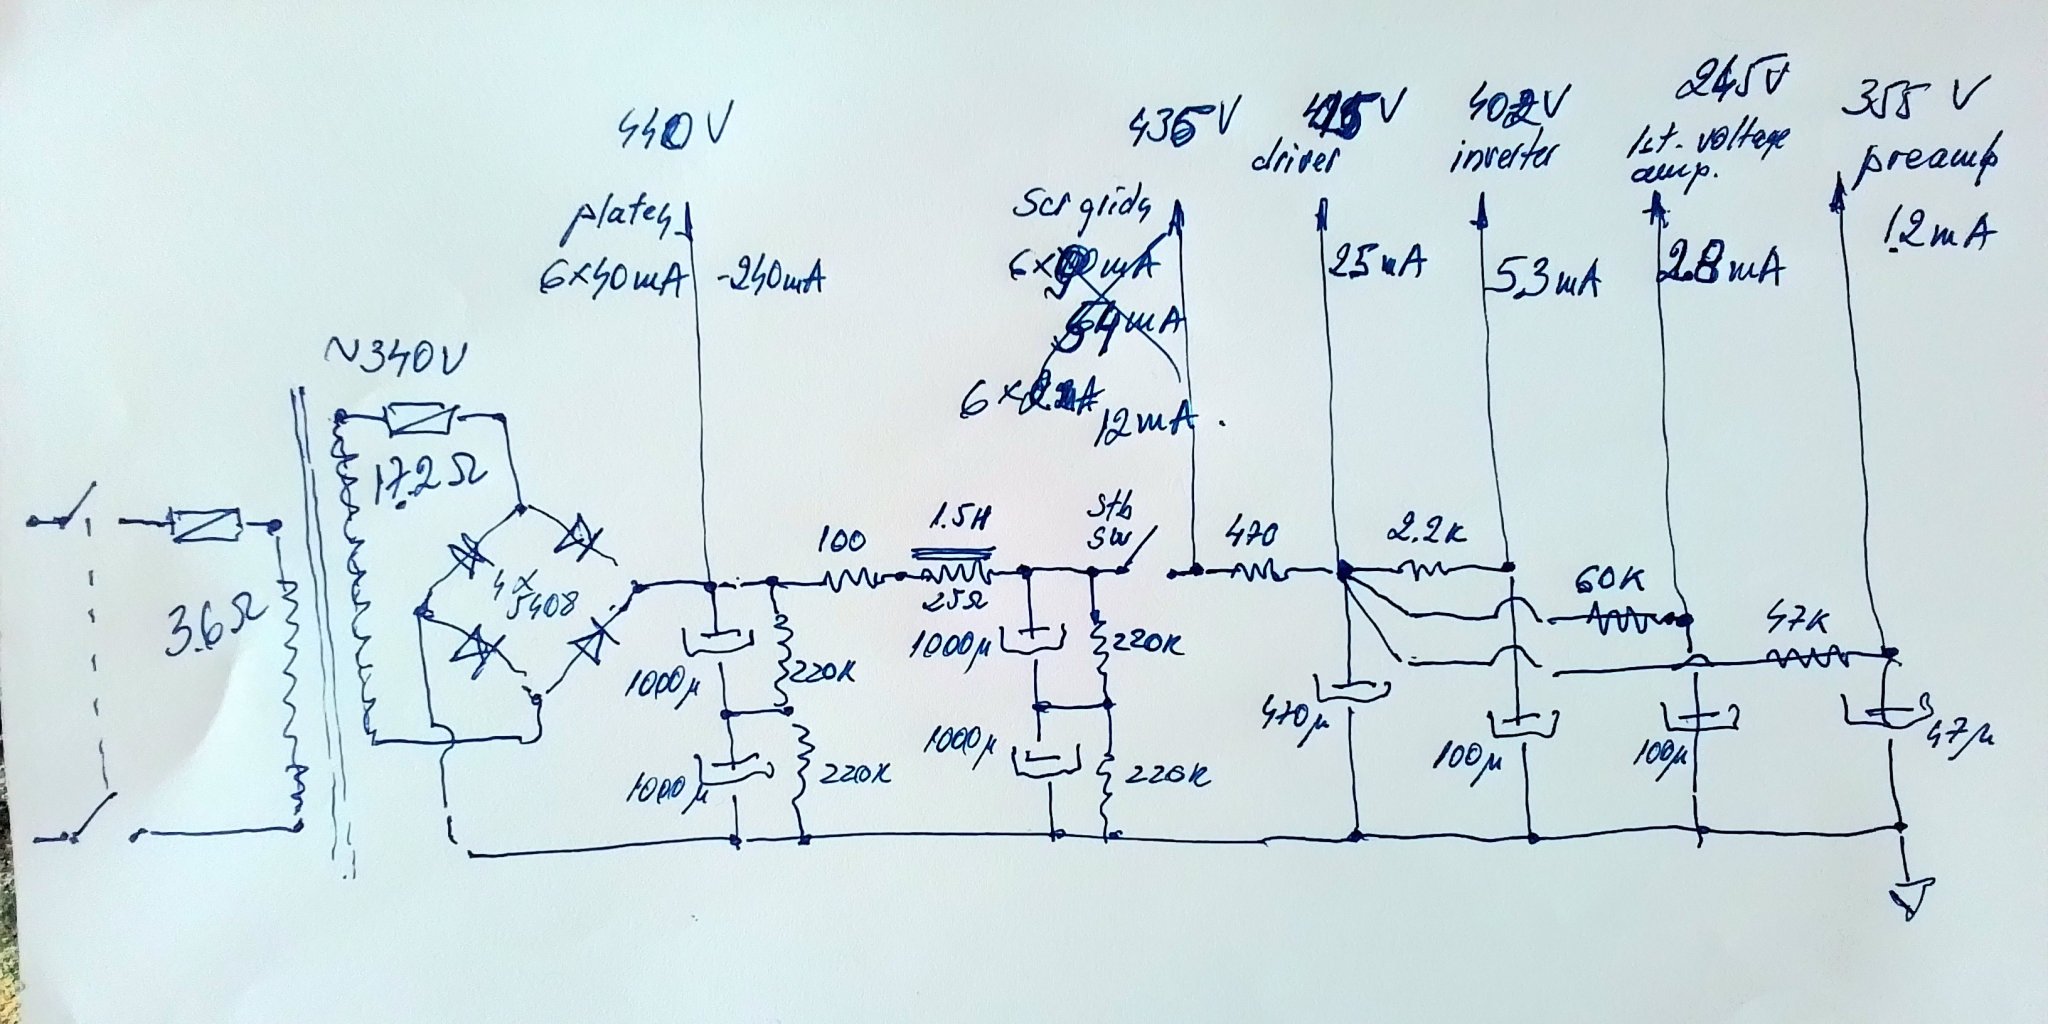 440V
435V
415V
402V
245V
355 V
plates
6×40mA
-240mA
Scr grids
driver
inverter
1st. voltage
amp.
preamp
54mA
6×2mA
12mA.
25mA
5.3mA
2.8mA
1.2mA
~340V
17.2Ω
3.6Ω
4×
5408
100
1.5H
25Ω
Stb
sw
470
2.2K
60K
47K
1000μ
220K
1000μ
220K
1000μ
220K
1000μ
220K
470μ
100μ
100μ
47μ